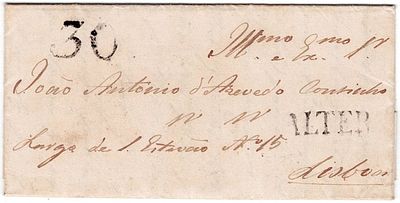 30
Illmo Exmo Sr
João Antonio d'Azevedo Coutinho
ALTER
Largo de S. Estevão No. 15
Lisboa